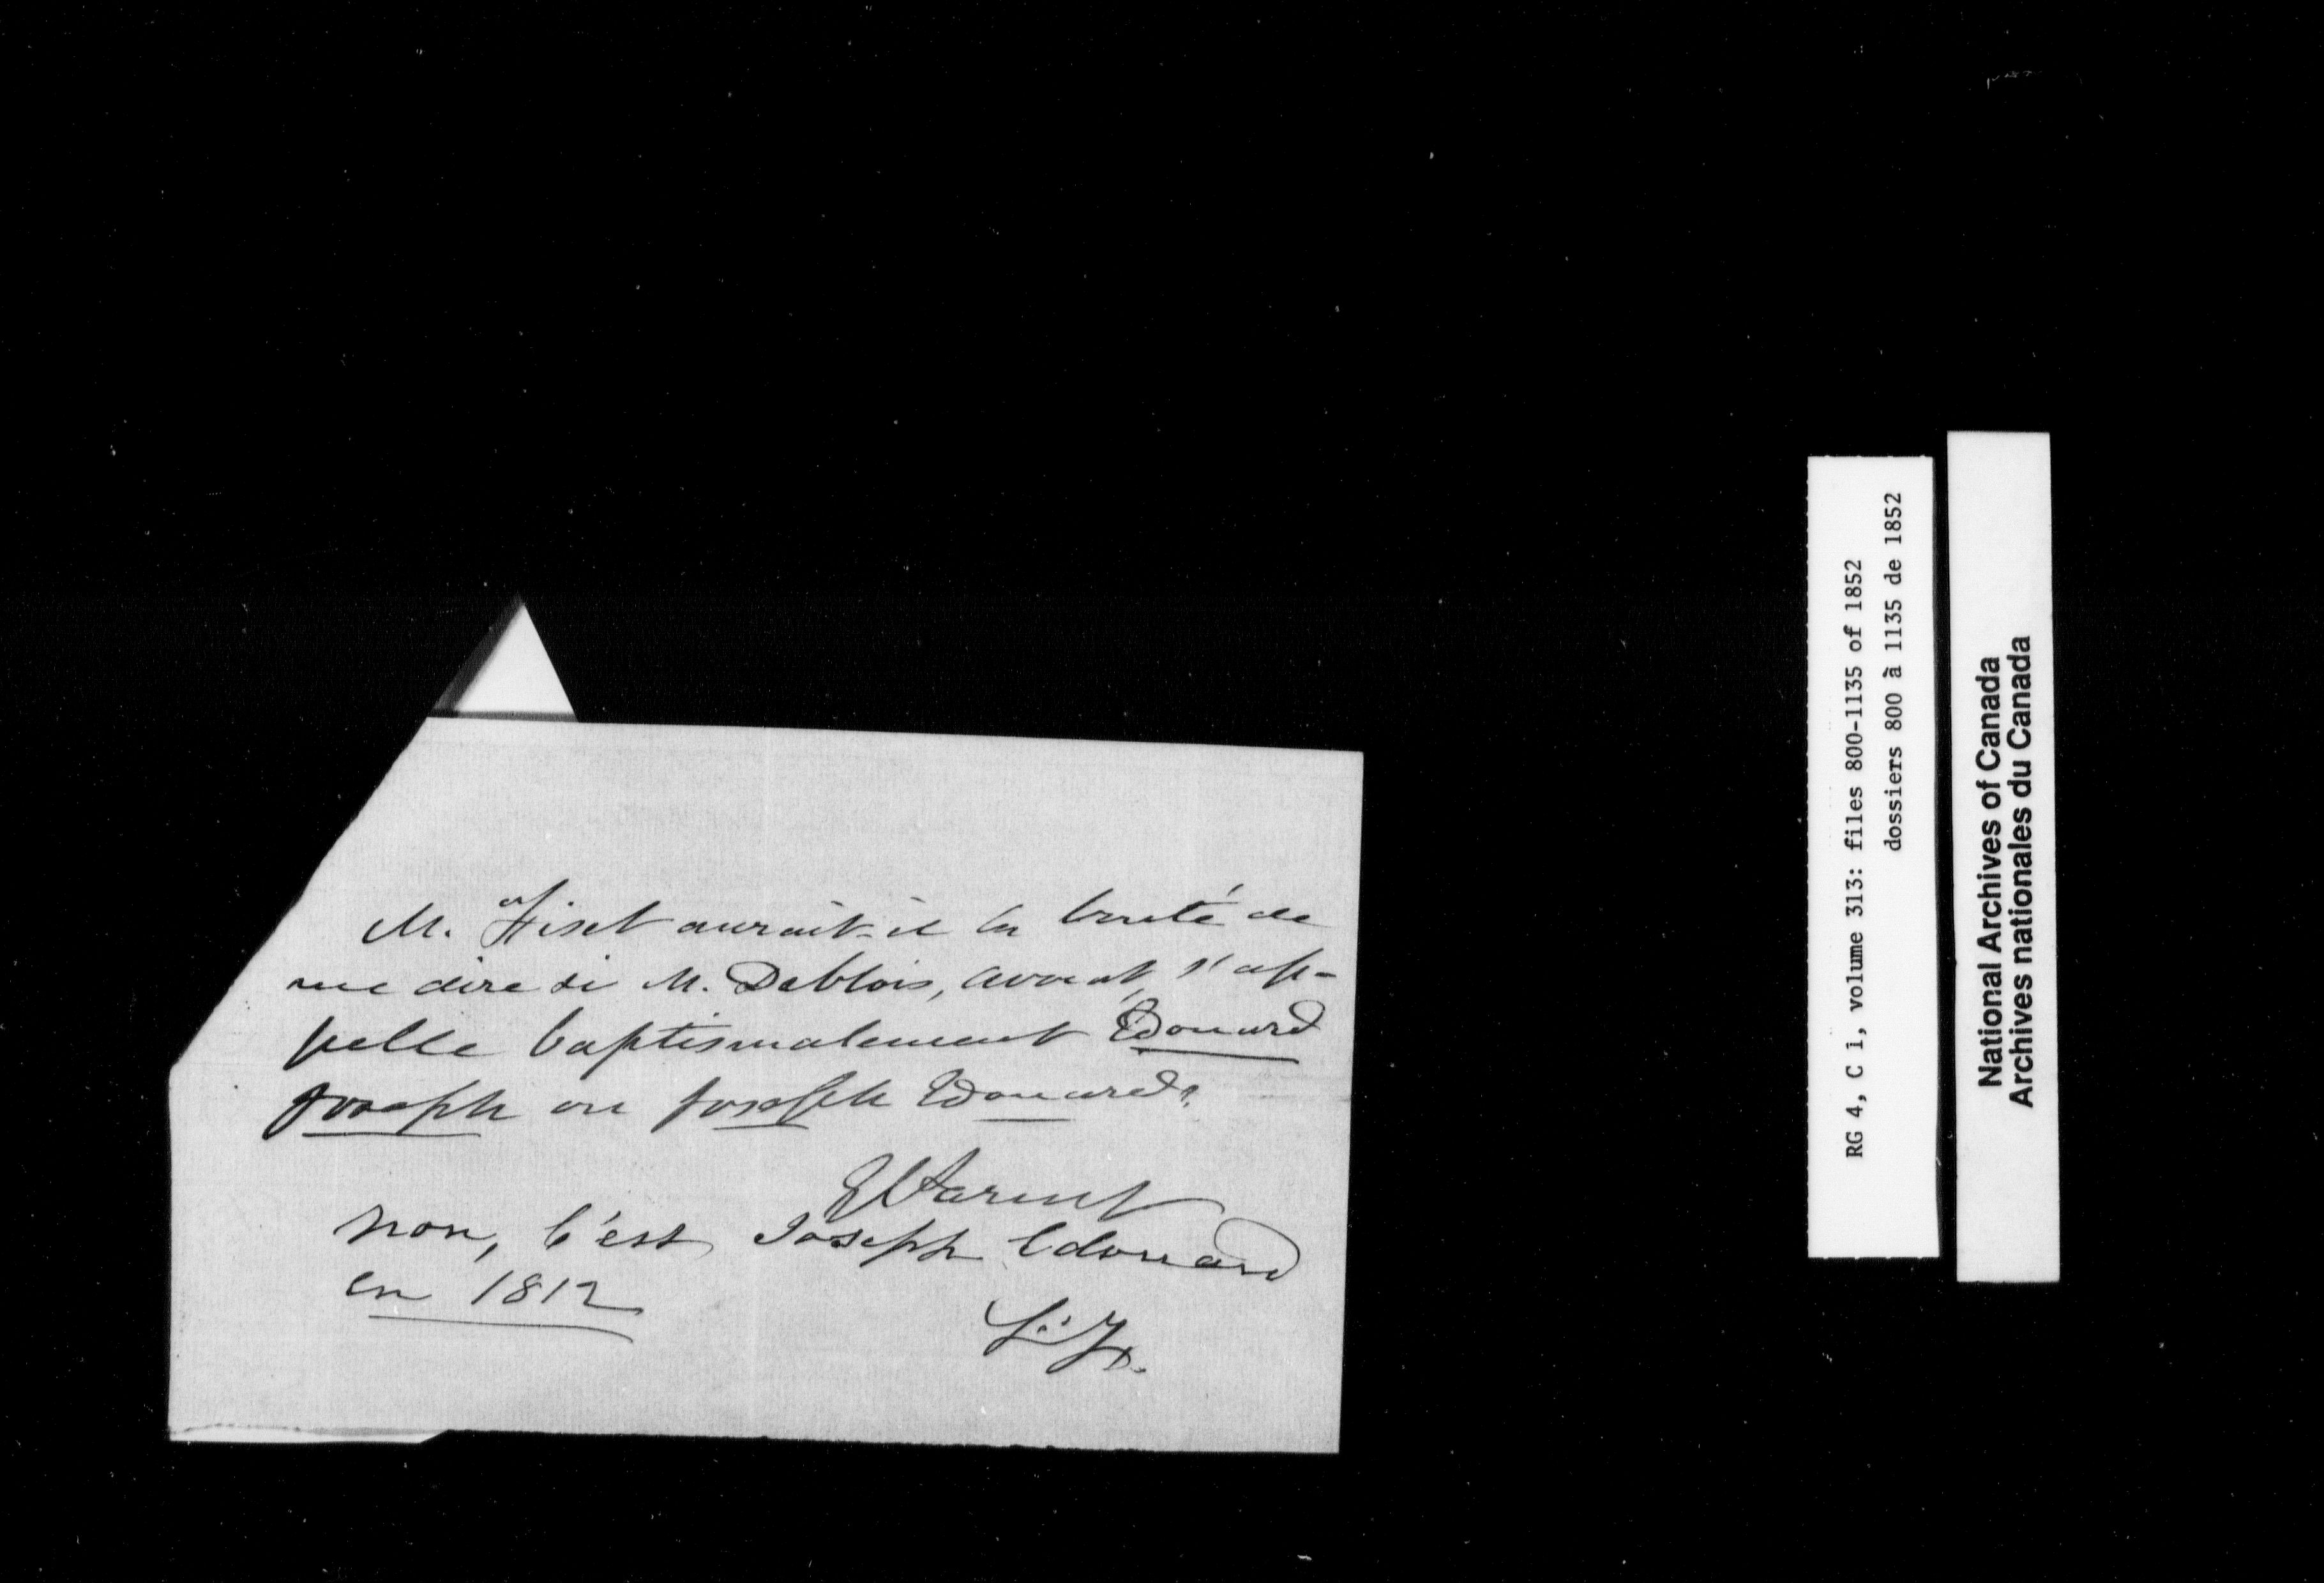 M. Fiset aurait-il la bonté de
me dire si M. DeBlois, avocat, s'ap-
pelle baptismalement Edouard
Joseph ou Joseph Edouard?
E Parent
Non, C'est Joseph Edouard
en 1812
L. F.
RG 4, C i, volume 313: files 800-1135 of 1852
dossiers 800 à 1135 de 1852
National Archives of Canada
Archives nationales du Canada